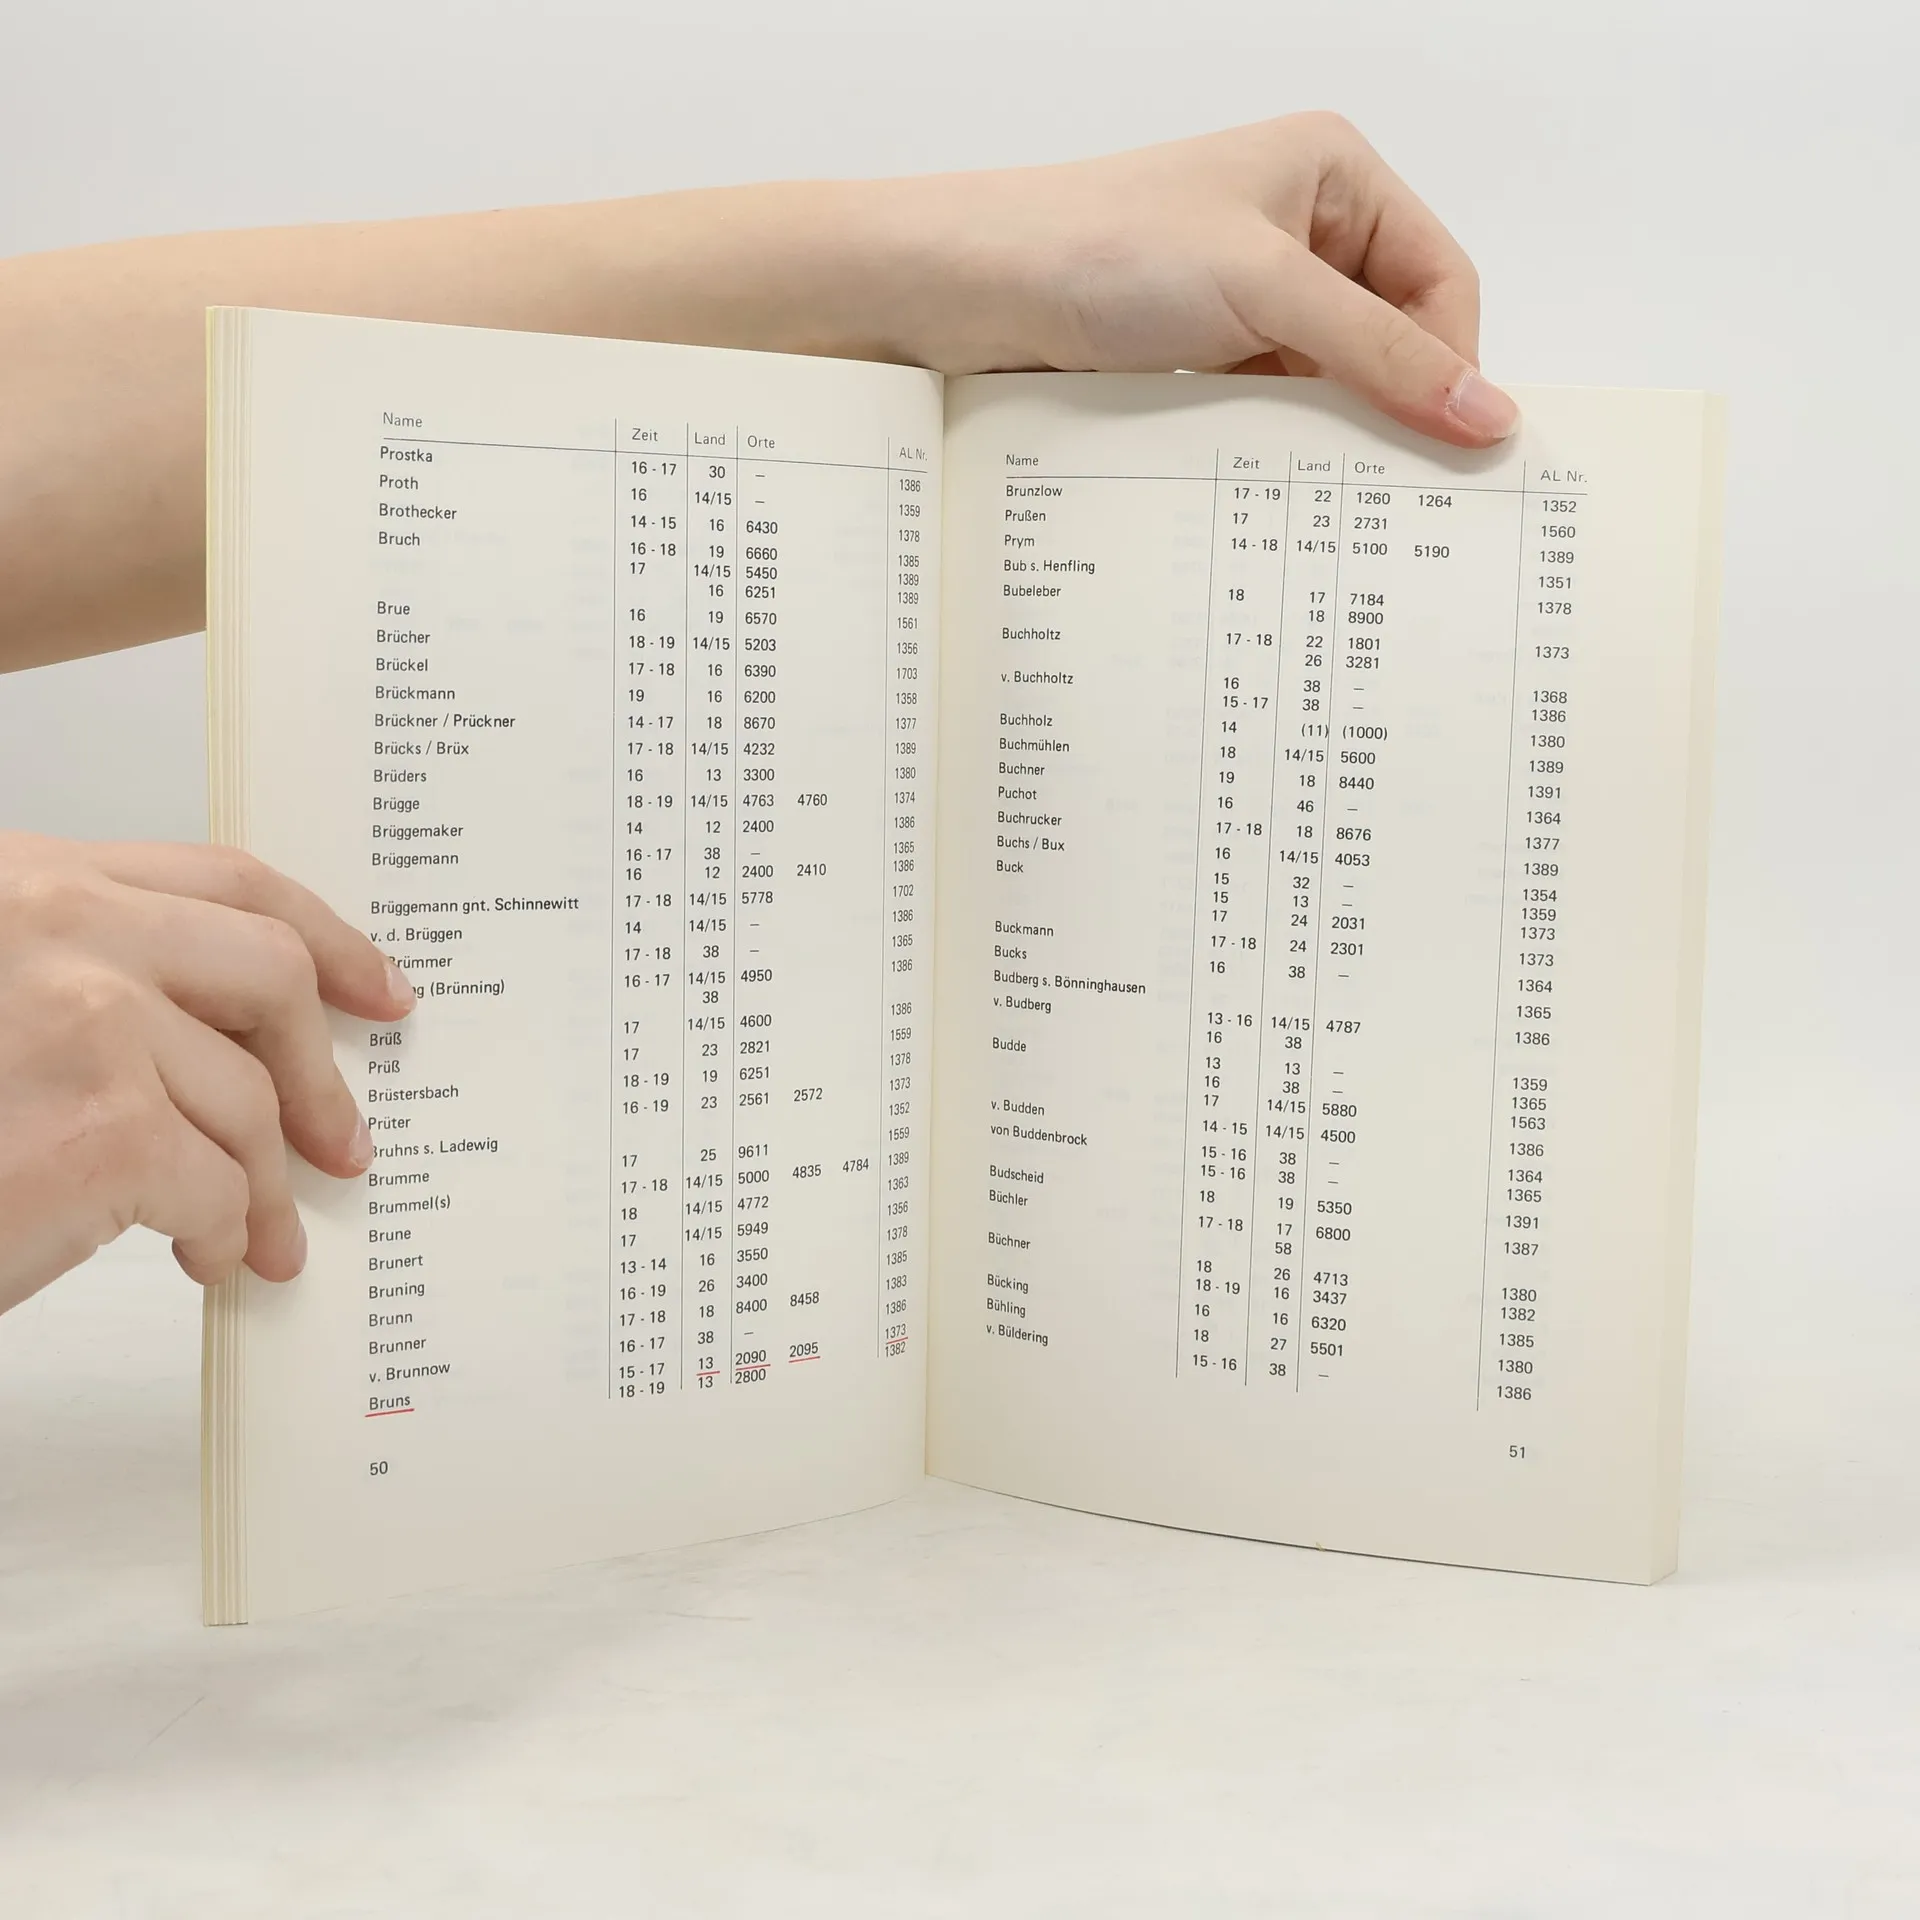 Name Zeit Land Orte AL Nr.
Prostka 16 - 17 30 – 1386
Proth 16 14/15 – 1359
Brothecker 14 - 15 16 6430 1378
Bruch 16 - 18 19 6660 1385
17 14/15 5450 1389
16 6251 1389
Brue 16 19 6570 1561
Brücher 18 - 19 14/15 5203 1356
Brückel 17 - 18 16 6390 1703
Brückmann 19 16 6200 1358
Brückner / Prückner 14 - 17 18 8670 1377
Brücks / Brüx 17 - 18 14/15 4232 1389
Brüders 16 13 3300 1380
Brügge 18 - 19 14/15 4763 4760 1374
Brüggemaker 14 12 2400 1386
Brüggemann 16 - 17 38 – 1365
16 12 2400 2410 1386
Brüggemann gnt. Schinnewitt 17 - 18 14/15 5778 1702
v. d. Brüggen 14 14/15 – 1386
17 - 18 38 – 1365
(Brünning) 16 - 17 14/15 4950 1386
38
Brüß 17 14/15 4600 1386
Prüß 17 23 2821 1559
Brüstersbach 18 - 19 19 6251 1378
Prüter 16 - 19 23 2561 2572 1373
Bruhns s. Ladewig 1352
Brumme 17 25 9611 1559
Brummel(s) 17 - 18 14/15 5000 4835 4784 1389
Brune 18 14/15 4772 1363
Brunert 17 14/15 5949 1356
Bruning 13 - 14 16 3550 1378
Brunn 16 - 19 26 3400 1385
Brunner 17 - 18 18 8400 8458 1383
v. Brunnow 16 - 17 38 – 1386
Bruns 15 - 17 13 2090 2095 1373
18 - 19 13 2800 1382
50
Name Zeit Land Orte AL Nr.
Brunzlow 17 - 19 22 1260 1264 1352
Prußen 17 23 2731 1560
Prym 14 - 18 14/15 5100 5190 1389
Bub s. Henfling 1351
Bubeleber 18 17 7184 1378
18 8900
Buchholtz 17 - 18 22 1801 1373
26 3281
v. Buchholtz 16 38 – 1368
15 - 17 38 – 1386
Buchholz 14 (11) (1000) 1380
Buchmühlen 18 14/15 5600 1389
Buchner 19 18 8440 1391
Puchot 16 46 – 1364
Buchrucker 17 - 18 18 8676 1377
Buchs / Bux 16 14/15 4053 1389
Buck 15 32 – 1354
15 13 – 1359
17 24 2031 1373
Buckmann 17 - 18 24 2301 1373
Bucks 16 38 – 1364
Budberg s. Bönninghausen 1365
v. Budberg 13 - 16 14/15 4787 1386
16 38
Budde 13 13 – 1359
16 38 – 1365
17 14/15 5880 1563
v. Budden 14 - 15 14/15 4500 1386
von Buddenbrock 15 - 16 38 – 1364
15 - 16 38 – 1365
Budscheid 18 19 5350 1391
Büchler 17 - 18 17 6800 1387
58
Büchner 18 26 4713 1380
18 - 19 16 3437 1382
Bücking 16 16 6320 1385
Bühling 18 27 5501 1380
v. Büldering 15 - 16 38 – 1386
51